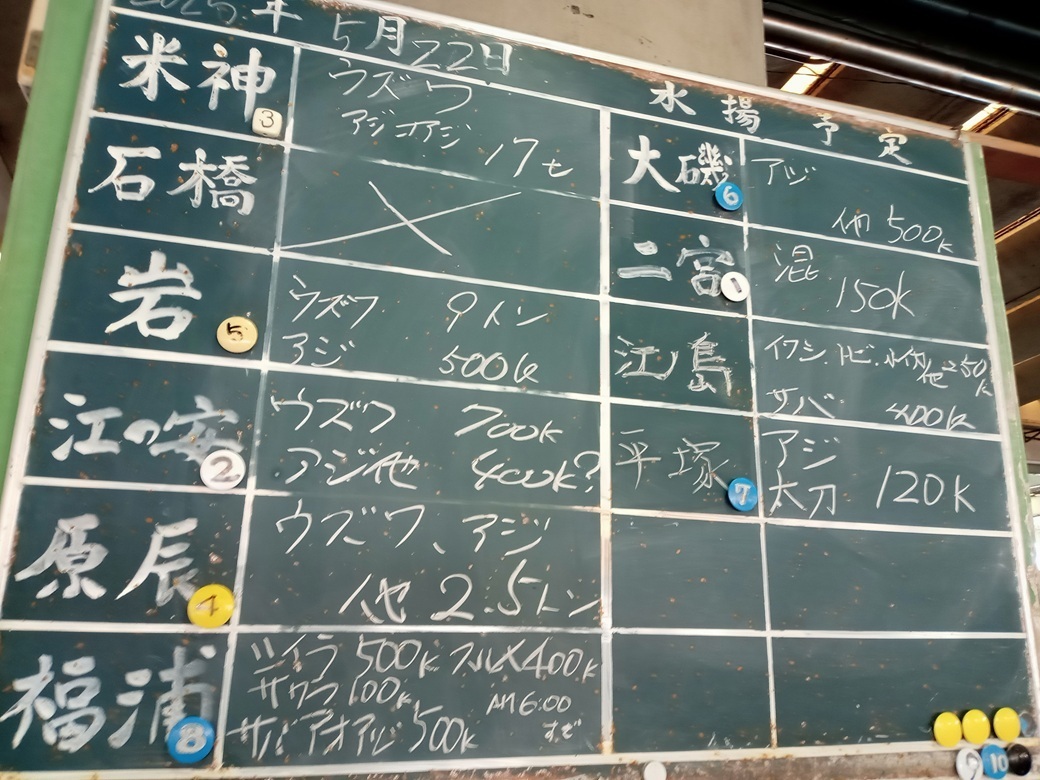 2025年 5月22日
水揚予定
米神
3
ウズワ
アジ オアジ 17t
石橋
岩
5
ウズワ 9トン
アジ 500k
江の安
2
ウズワ 700k
アジ他 400k?
原辰
ウズワ、アジ
他 2.5トン
福浦
8
ツイラ 500k フルメ400k
サワラ100k AM6:00
サバ アオアジ 500k すぎ
大磯
6
アジ
他 500k
二宮
1
混
150k
江ノ島
イワシ.トビ. 他250k
サバ 400k
平塚
7
アジ
太刀 120k
9 10